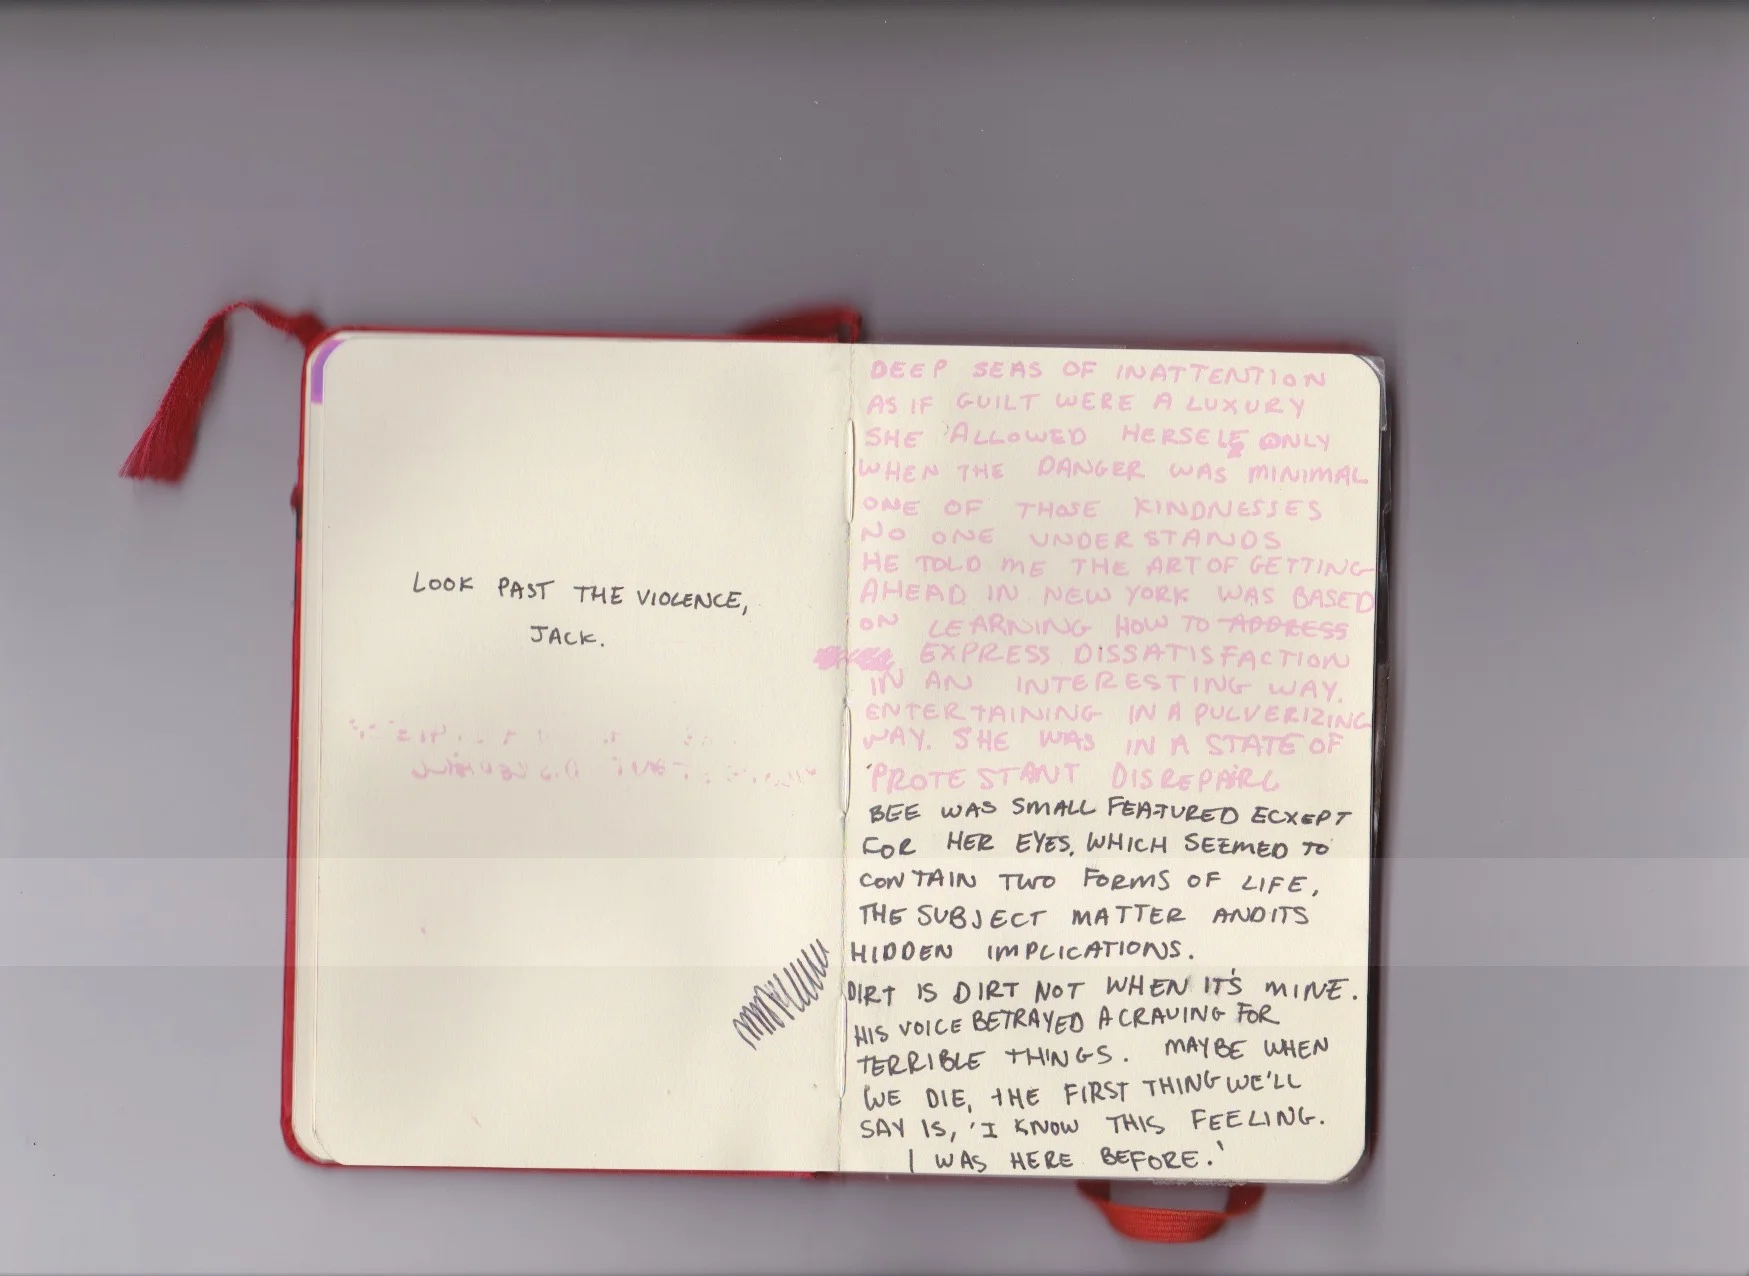 LOOK PAST THE VIOLENCE,
JACK.
DEEP SEAS OF INATTENTION
AS IF GUILT WERE A LUXURY
SHE ALLOWED HERSELF ONLY
WHEN THE DANGER WAS MINIMAL
ONE OF THOSE KINDNESSES
NO ONE UNDERSTANDS
HE TOLD ME THE ART OF GETTING
AHEAD IN NEW YORK WAS BASED
ON LEARNING HOW TO ADDRESS
EXPRESS DISSATISFACTION
IN AN INTERESTING WAY.
ENTERTAINING IN A PULVERIZING
WAY. SHE WAS IN A STATE OF
PROTESTANT
BEE WAS SMALL FEATURED ECXEPT
FOR HER EYES, WHICH SEEMED TO
CONTAIN TWO FORMS OF LIFE,
THE SUBJECT MATTER AND ITS
HIDDEN IMPLICATIONS.
DIRT IS DIRT NOT WHEN IT'S MINE.
HIS VOICE BETRAYED A CRAVING FOR
TERRIBLE THINGS. MAYBE WHEN
WE DIE, THE FIRST THING WE'LL
SAY IS, 'I KNOW THIS FEELING.
I WAS HERE BEFORE.'